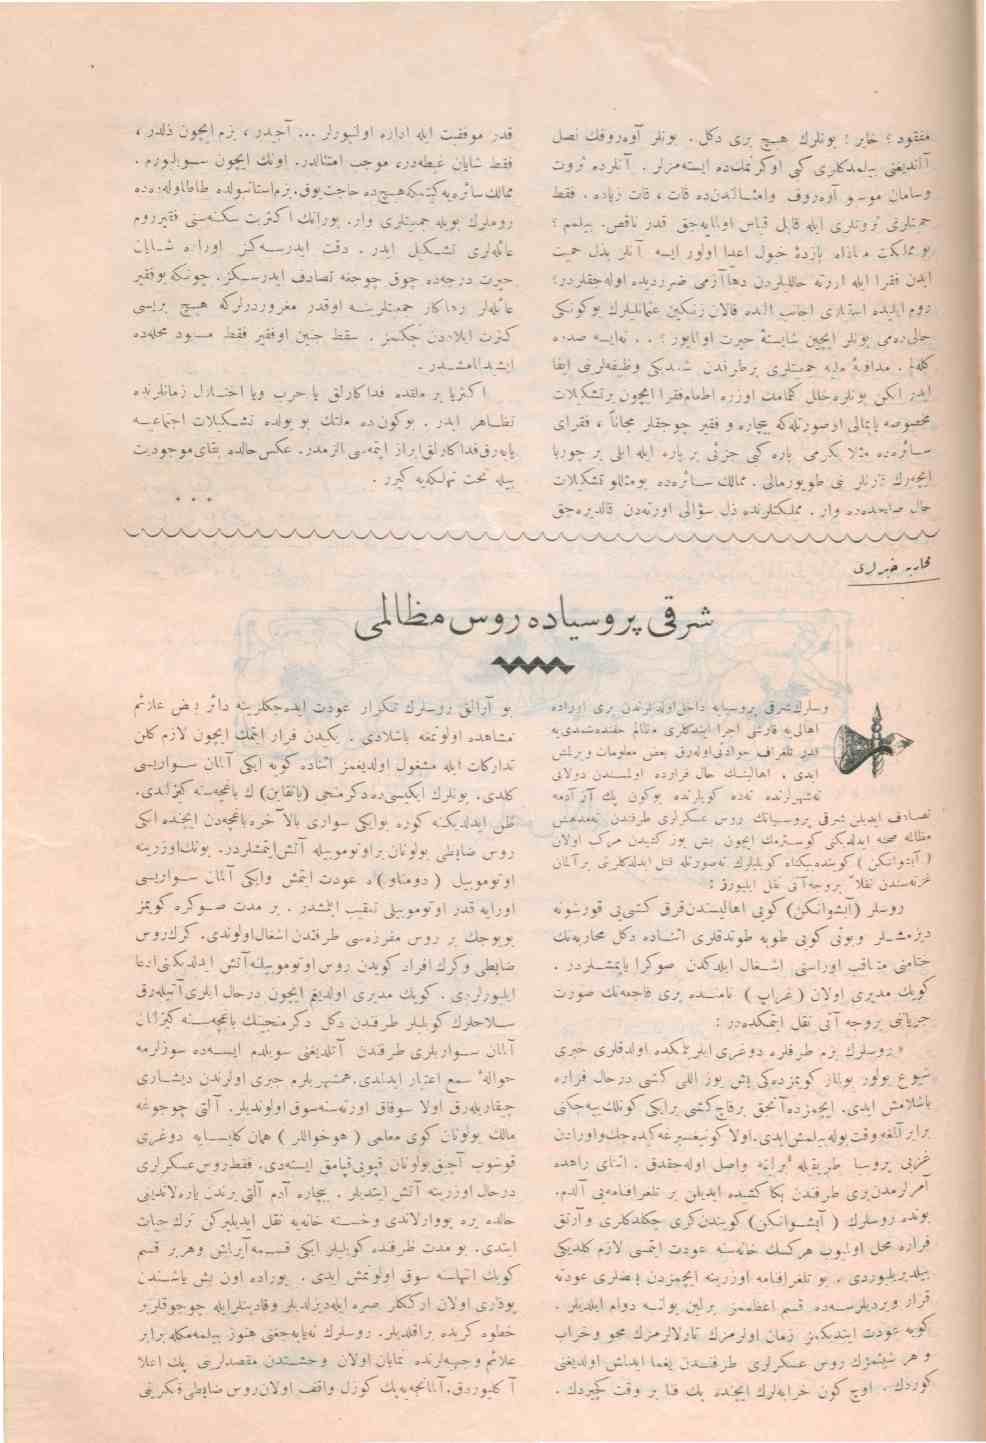 مفقود؛ خایر؛ بونلرك هیچ بری دكل. بونلر آوه‌روفك نصل
آلندیغنی بیلمدكلری كبی اوكرنمك‌ده ایسته‌مزلر. آنلرده ثروت
وسامان موسیو آوه‌روف وامثالندن‌ده قات، قات زیاده. فقط
حمیتلری ثروتلری ایله قابل قیاس اولمایه‌جق قدر ناقص. بیلمم؟
بو مملكت معاذالله یازدۀ خیول اعدا اولور ایسه آنلر بذل حمیت
ایدن فقرا ایله ارته حاللیلردن دهاآزمی ضرردیده اوله‌جقلردر؛
روم ایلیده استیلای اجانب الله قالان زنكین عثمانلیلرك بوكونكی
حالی‌ده‌می بونلر ایچین شایستۀ حیرت اولمایور؟.. نه‌ایسه صدده
كله‌لم. مدافعۀ ملیه جمعیتلری برطرفدن شمدیكی وظیفه‌لرینی ایفا
ایدر ایكن بونلره خلل كلمامك اوزره اطعام‌فقرا ایچون برتشكیلات
مخصوصه یاپمالی اوصورتله‌كه بیچاره و فقیر چوجقلر مجاناً، فقرای
سائره‌ده مثلا یكرمی پاره كبی جزئی بر پاره ایله اتلی بر چوربا
ایچه‌رك قارنلر نی طویورمالی. ممالك سائره‌ده بومثللو تشكیلات
حال فعالیتده‌در وار. مملكتلرنده ذل سؤالی اورته‌دن قالدیره‌جق
قدر موفقیت ایله اداره اولنیورلر... آجیدر، بزم ایچون ذلدر،
فقط شایان غبطه‌در، موجب امتثالدر. اونك ایچون سویلیورم.
ممالك سائره‌یه كیتمكه هیچ‌ده حاجت یوق، بزم استانبولده طاطاوله‌ده‌ده
روملرك بویله جمعیتلری وار. بورانك اكثریت سكنه‌سنی فقیر روم
عائله‌لری تشكیل ایدر. دقت ایدرسه‌كز اوراده شایان
حیرت درجه‌ده چوق چوجغه تصادف ایدرسكز. چونكه بوفقیر
عائله‌لر رعاكار جمعیتلرینه اوقدر مغروردرلركه هیچ بریسی
كثرت اولاددن چكنمز. سقط جنین اوفقیر فقط مسعود محله‌ده
ایشیدلمامشدر.
اكثریا بر ملتده فداكارلق یا حرب ویا اختلال زمانلرنده
تظاهر ایدر. بوكون‌ده ملتك بو یولده تشكیلات اجتماعیه
یاپه‌رق فداكارلق ابراز ایتمه‌سی الزمدر. عكس حالده بقای موجودیت
بیله تحت تهلكه‌یه كیرر.
* * *
محاربه خبرلری
شرقی پروسیاده روس مظالمی
وسلرك شرقی پروسیایه داخل اولدقلرندن بری اوراده
اهالی‌یه قارشی اجرا ایتدكلری مظالم حقنده شمدی‌یه
قدر تلغراف حوادثی اوله‌رق بعض معلومات ویرلمش
ایدی. اهالینك حال فرارده اولمسندن دولایی
نه‌شهرلرنده نه‌ده كویلرنده بوكون پك آز آدمه
تصادف ایدیلن شرقی پروسیانك روس عسكرلری طرفندن نه‌مدهش
مظالمه صحنه ایدلدیكنی كوسترمك ایچون بش یوز كشیدن مركب اولان
(آبشوانكن) كوینده بیكناه كویلیلرك نه‌صورتله قتل ایدلدكلرینی بر آلمان
غزته‌سندن نقلاً بروجه‌آتی نقل ایلیورز:
روسلر (آبشوانكن) كویی اهالیسندن قرق كشی‌یی قورشونه
دیزمشلر وبونی كویی طوپه طوتدقلری اثناده دكل محاربه‌نك
ختامنی متعاقب اوراسنی اشغال ایلدكدن صوكرا یاپمشلردر.
كویك مدیری اولان (غراپ) نامنده بری فاجعه‌نك صورت
جریاننی بروجه آتی نقل ایتمكده‌در:
«روسلرك بزم طرفلره دوغری ایلریلمكده اولدقلری خبری
شیوع بولور بولماز كویمزده‌كی بش یوز اللی كشی درحال فراره
باشلامش ایدی. ایچمزده آنجق برقاچ كشی برایكی كونلك ییه‌جكنی
برابر آلمغه وقت بوله بیلمش ایدی. اولا كونیغسبرغه كیده‌جك واورادن
غربی پروسیا طریقیله برلینه واصل اوله‌جقدق. اثنای راهده
آمرلرمدن بری طرفندن بكا كشیده ایدیلن بر تلغرافنامه‌یی آلدم.
بونده روسلرك (آبشوانكن) كویندن كری چكلدكلری وآرتق
فراره محل اولمیوب هركسك خانه‌سنه عودت ایتمسی لازم كلدیكی
بیلدیریلیوردی. بو تلغرافنامه اوزرینه ایچمزدن بعضلری عودته
قرار ویردیلرسه‌ده قسم اعظممز برلین یولنه دوام ایلدیلر.
كویه عودت ایتدیكمز زمان اولرمزك تارلالرمزك محو وخراب
و هر شیئمزك روس عسكرلری طرفندن یغما ایدلمش اولدیغنی
كوردك. اوچ كون خرابه‌لرك ایچنده پك فنا بر وقت كچیردك.
بو آرالق روسلرك تكرار عودت ایده‌جكلرینه دائر بعض علائم
مشاهده اولونمغه باشلادی. یكیدن فرار ایتمك ایچون لازم كلن
تداركات ایله مشغول اولدیغمز اثناده كویه ایكی آلمان سواریسی
كلدی. بونلرك ایكیسی‌ده دكرمنجی (یانقاین) ك باغچه‌سنه كیزلندی.
ظن ایدلدیكنه كوره بوایكی سواری بالآخره باغچه‌دن ایچنده ایكی
روس ضابطی بولونان براوتوموبیله آتش ایتمشلردر. بونك اوزرینه
اوتوموبیل (دومناو) ه عودت ایتمش وایكی آلمان سواریسی
اورایه قدر اوتوموبیلی تعقیب ایلشدر. بر مدت صوكره كویمز
بویوجك بر روس مفرزه‌سی طرفندن اشغال اولوندی. كرك روس
ضابطی وكرك افراد كویدن روس اوتوموبیلنه آتش ایدلدیكنی ادعا
ایلیورلردی. كویك مدیری اولدیغم ایچون درحال ایلری آتیله‌رق
سلاحلرك كویلیلر طرفندن دكل دكرمنجینك باغچه‌سنه كیزلنن
آلمان سواریلری طرفندن آتلدیغنی سویلدم ایسه‌ده سوزلرمه
حوالۀ سمع اعتبار ایدلدی. همشهریلرم جبری اولرندن دیشاری
چیقاریله‌رق اولا سوقاق اورته‌سنه سوق اولوندیلر. آلتی چوجوغه
مالك بولونان كوی معلمی (هوخواللر) همان كلیسایه دوغری
قوشوب آچیق بولونان قپویی قپامق ایسته‌دی. فقط روس عسكرلری
درحال اوزرینه آتش ایتدیلر. بیچاره آدم آلتی یرندن یاره‌لاندیغی
حالده یره یووارلاندی وخسته خانه‌یه نقل ایدیلیركن ترك حیات
ایتدی. بو مدت ظرفنده كویلیلر ایكی قسمه آیرلمش وهر بر قسم
كویك انتهاسنه سوق اولونمش ایدی. بوراده اون بش یاشندن
یوقاری اولان ارككلر صره ایله دیزلدیلر وقادینلر ایله چوجوقلر بر
خطوه كریده براقلدیلر. روسلرك نه‌یاپه‌جغنی هنوز بیلمه‌مكله برابر
علائم وجهیه‌لرنده نمایان اولان وحشتدن مقصدلرینی پك اعلا
آكلیوردق. آلمانجه‌یه پك كوزل واقف اولان روس ضابطی فكرینی